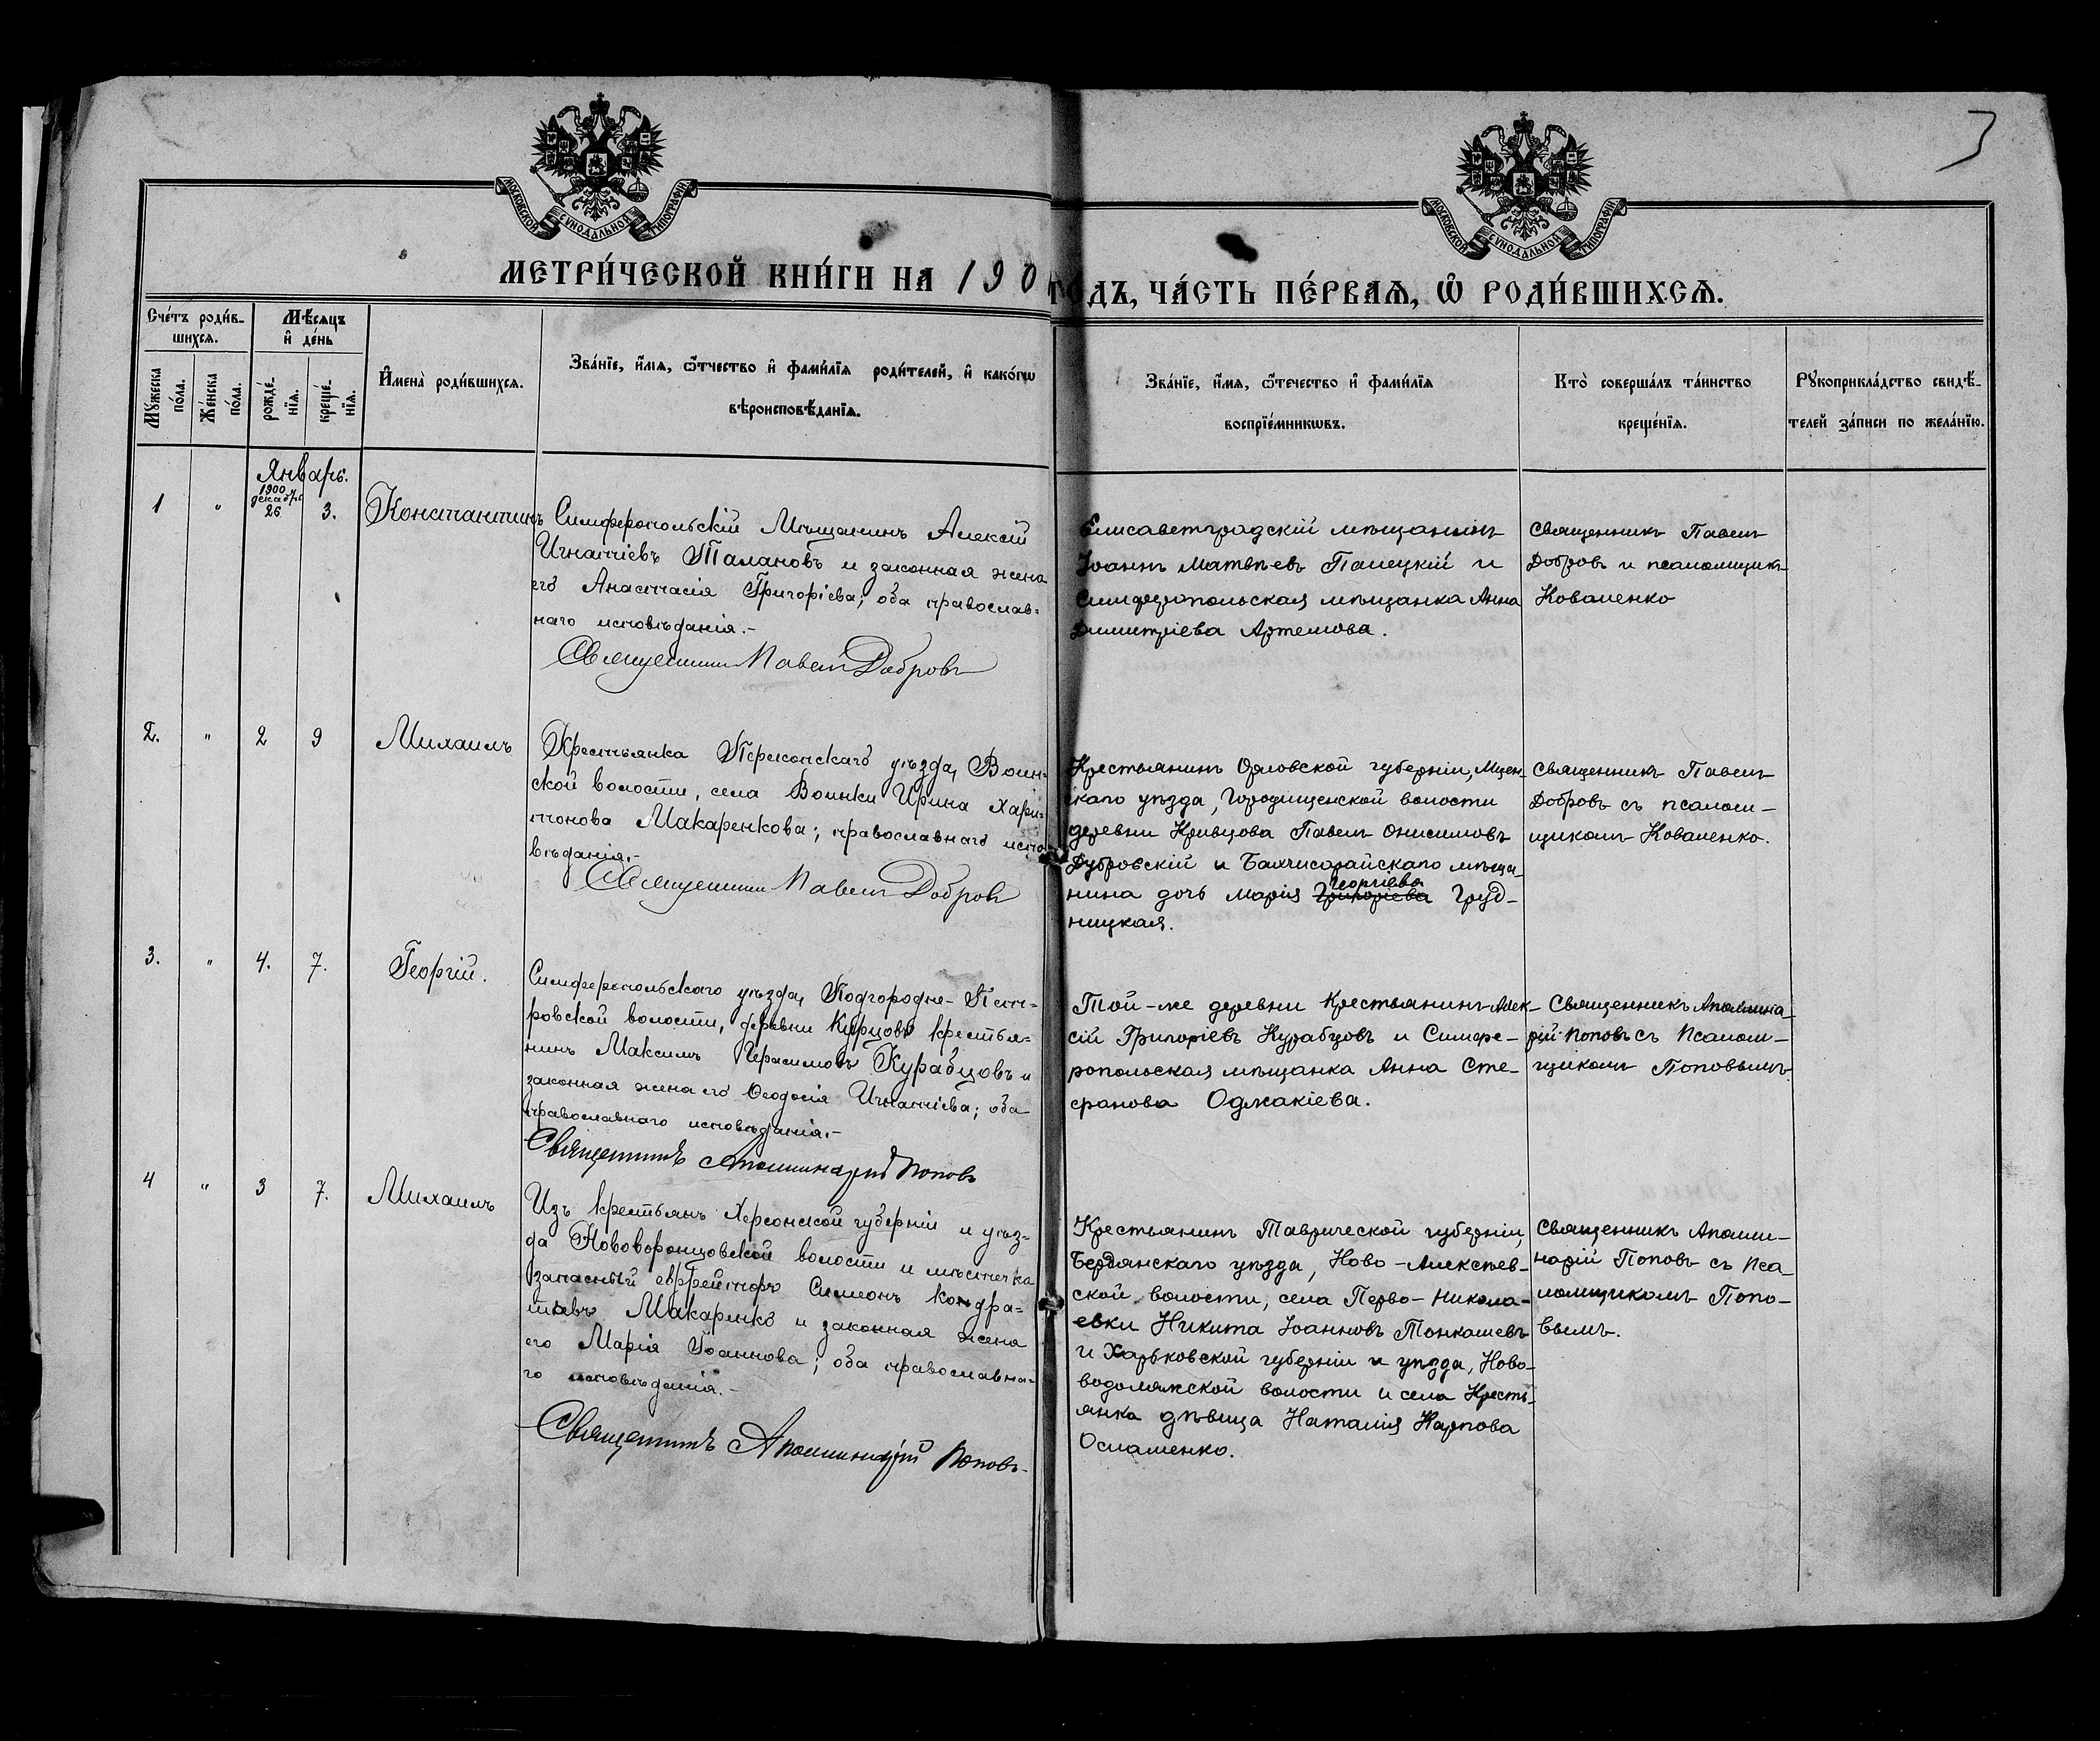 3
МОСКОВСКОЙ СУНОДАЛЬНОЙ ТИПОГРАФІИ
МОСКОВСКОЙ СУНОДАЛЬНОЙ ТИПОГРАФІИ
МЕТРИ́ЧЕСКОЙ КНИ́ГИ НА 190
ГОДЪ, ЧА́СТЬ ПЕ́РВАѦ, Ѡ҆ РОДИ́ВШИХСѦ.
Сче́тъ роди́в-
шихсѧ.
Мꙋжеска
по́ла.
Же́нска
по́ла.
Мѣ́сѧцъ
и҆ де́нь
рожде́-
нїѧ.
креще́-
нїѧ.
И҆мена̀ роди́вшихсѧ.
Зва́нїе, и҆́мѧ, ѻ҆́тчество и҆ фами́лїѧ роди́телей, и҆ како́гѡ
вѣроисповѣ́данїѧ.
Зва́нїе, и҆́мѧ, ѻ҆́течество и҆ фами́лїѧ
воспрїе́мникѡвъ.
Кто̀ соверша́лъ та́инство
креще́нїѧ.
Рꙋкоприкла́дство свидѣ́-
телей за́писи по жела́нїю.
Январь.
1
"
1900
декабрь
26
3.
Константинъ
Симферопольскій Мѣщанинъ Алексій
Игнатіевъ Талановъ и законная жена
его Анастасія Григоріева; оба православ=
наго исповѣданія.-
Священникъ Павелъ Добровъ
Елисаветградскій мѣщанинъ
Іоаннъ Матвѣевъ Палецкій и
Симферопольская мѣщанка Анна
Димитріева Артемова.
Священникъ Павелъ
Добровъ и псаломщикъ
Коваленко
2.
"
2
9
Михаилъ
Крестьянка Перекопскаго уѣзда, Воин-
ской волости, села Воинки Ирина Хари=
тонова Макаренкова; православнаго испо
вѣданія.-
Священникъ Павелъ Добровъ
Крестьянинъ Орловской губерніи, Мцен-
скаго уѣзда, Городищенской волости
деревни Кривцова Павелъ Онисимовъ
Дубровскій и Бахчисарайскаго мѣща
Георгіева
нина дочь Марія Григоріева Груд-
ницкая.
Священникъ Павелъ
Добровъ съ псалом-
щикомъ Коваленко.
3.
"
4.
7.
Георгій.
Симферопольскаго уѣзда, Подгородне-Пет-
ровской волости, деревни Курцовъ крестья=
нинъ Максимъ Герасимовъ Курабцовъ и
законная жена его Ѳеодосія Игнатіева; оба
православнаго исповѣданія.-
Священникъ Аполлинарій Поповъ
Той-же деревни Крестьянинъ Алек-
сій Григоріевъ Курабцовъ и Симфе-
ропольская мѣщанка Анна Сте-
фанова Оджакіева.
Священникъ Аполлина-
рій Поповъ съ Псалом-
щикомъ Поповымъ.
4
"
3
7.
Михаилъ
Изъ крестьянъ Херсонской губерніи и уѣз-
да Нововоронцовской волости и мѣстечка
запасный ефрейторъ Симеонъ Кондра=
тьевъ Макаренко и законная жена
его Марія Іоаннова; оба православна-
го исповѣданія.-
Священникъ Аполлинарій Поповъ-
Крестьянинъ Таврической губерніи,
Бердянскаго уѣзда, Ново-Алексѣев-
ской волости, села Перво-Никола-
евки Никита Іоанновъ Тонкашевъ
и Харьковской губерніи и уѣзда, Ново-
водолажской волости и села Кресть-
янка дѣвица Наталія Карпова
Осмашенко.
Священникъ Аполли-
нарій Поповъ съ Пса-
ломщикомъ Попо-
вымъ.